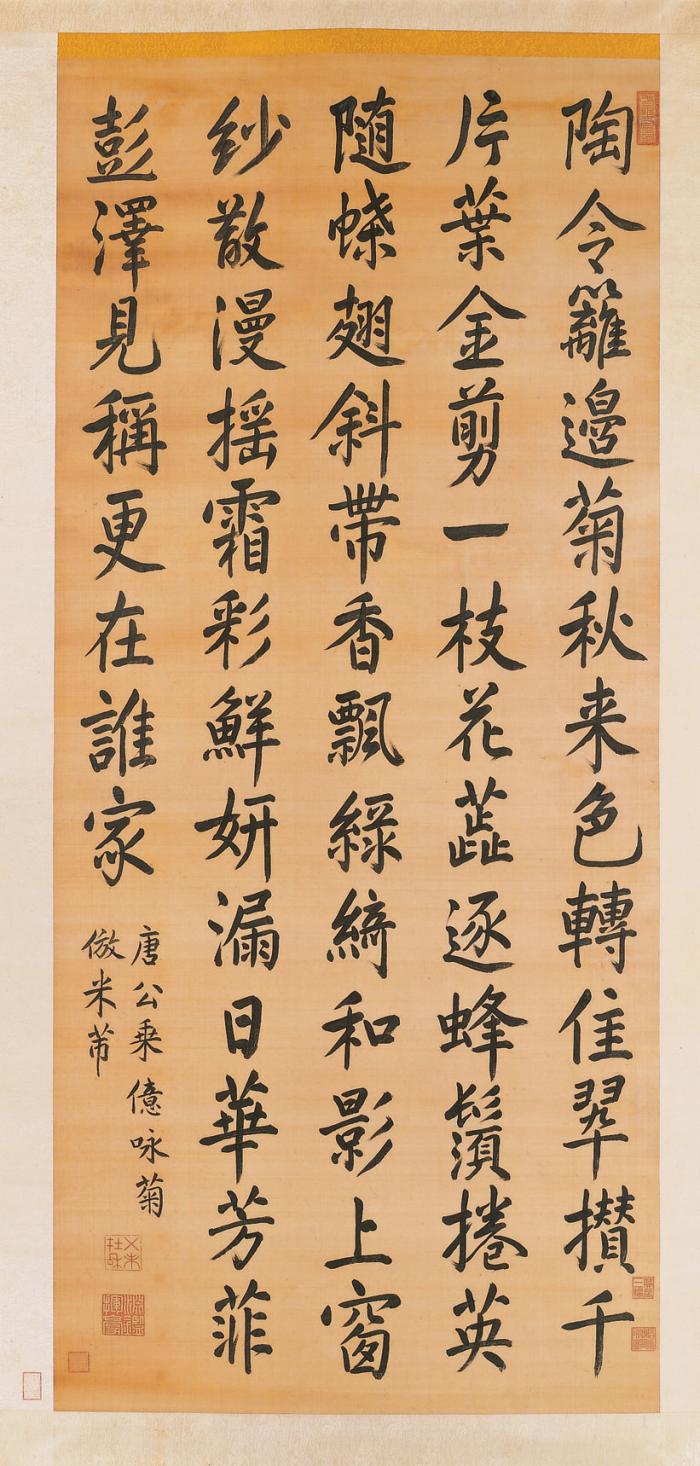 陶令籬邉菊秋来色轉佳翠攅千
片葉金剪一枝花蕋逐蜂鬚捲英
随蝶翅斜帶香飄綠綺和影上窗
紗散漫摇霜彩鮮妍漏日華芳菲
彭澤見稱更在誰家
唐公乗億咏菊
倣米芾